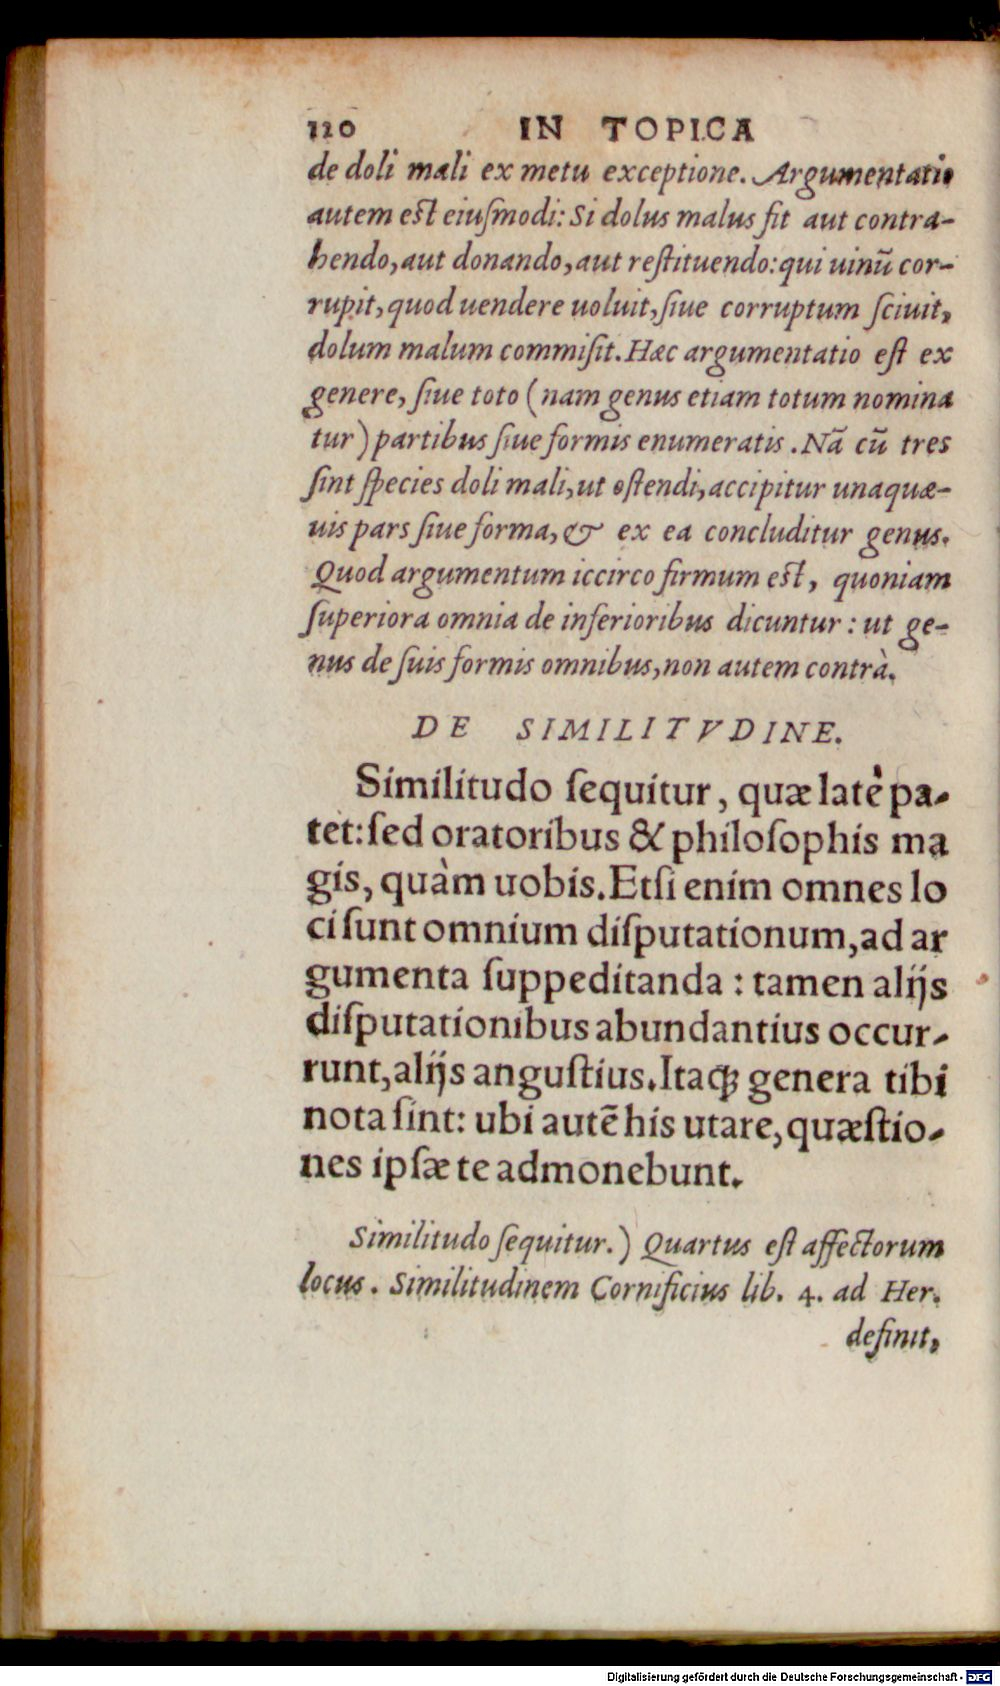 110 IN TOPICA
de doli mali ex metu exceptione. Argumentatio
autem est eiuſmodi: Si dolus malus fit aut contra-
hendo, aut donando, aut reſtituendo: qui uinū cor-
rupit, quod uendere uoluit, ſiue corruptum ſciuit,
dolum malum commiſit. Hæc argumentatio eſt ex
genere, ſiue toto (nam genus etiam totum nomina
tur) partibus ſiue formis enumeratis. Nā cū tres
ſint ſpecies doli mali, ut oſtendi, accipitur unaquæ-
uis pars ſiue forma, & ex ea concluditur genus.
Quod argumentum iccirco firmum est, quoniam
ſuperiora omnia de inferioribus dicuntur: ut ge-
nus de ſuis formis omnibus, non autem contrà.
DE SIMILITVDINE.
Similitudo ſequitur, quæ latè pa-
tet: ſed oratoribus & philoſophis ma
gis, quàm uobis. Etſi enim omnes lo
ci ſunt omnium diſputationum, ad ar
gumenta ſuppeditanda: tamen alijs
diſputationibus abundantius occur-
runt, alijs anguſtius. Itaq; genera tibi
nota ſint: ubi autē his utare, quæſtio-
nes ipſæ te admonebunt.
Similitudo ſequitur.) Quartus eſt affectorum
locus. Similitudinem Cornificius lib. 4. ad Her.
definit,
Digitalisierung gefördert durch die Deutsche Forschungsgemeinschaft - DFG